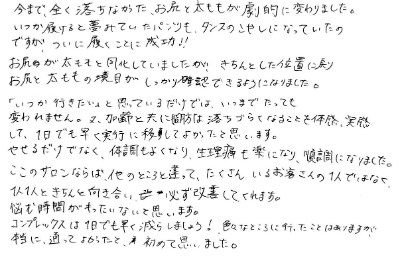 今まで、全く落ちなかった、お尻と太ももが劇的に変わりました。
いつか履けると夢みていたパンツも、タンスのこやしになっていたの
ですが、ついに履くことに成功!!
お尻が太ももと同化していましたが、きちんとした位置に戻り
お尻と太ももの境目がしっかり確認できるようになりました。
「いつか行きたい」と思っているだけでは、いつまでたっても
変われません。又、加齢と共に脂肪は落ちづらくなることを体感、実感
して、1日でも早く実行に移してよかったと思います。
やせるだけでなく、体調もよくなり、生理痛も楽になり、順調になりました。
ここのサロンならば、他のところと違って、たくさんいるお客さんの1人ではなく、
1人1人ときちんと向き合い、必ず改善してくれます。
悩む時間がもったいないと思います。
コンプレックスは1日でも早く減らしましょう! 色々なところに行ったことはありますが
本当に、通ってよかったと、初めて思いました。